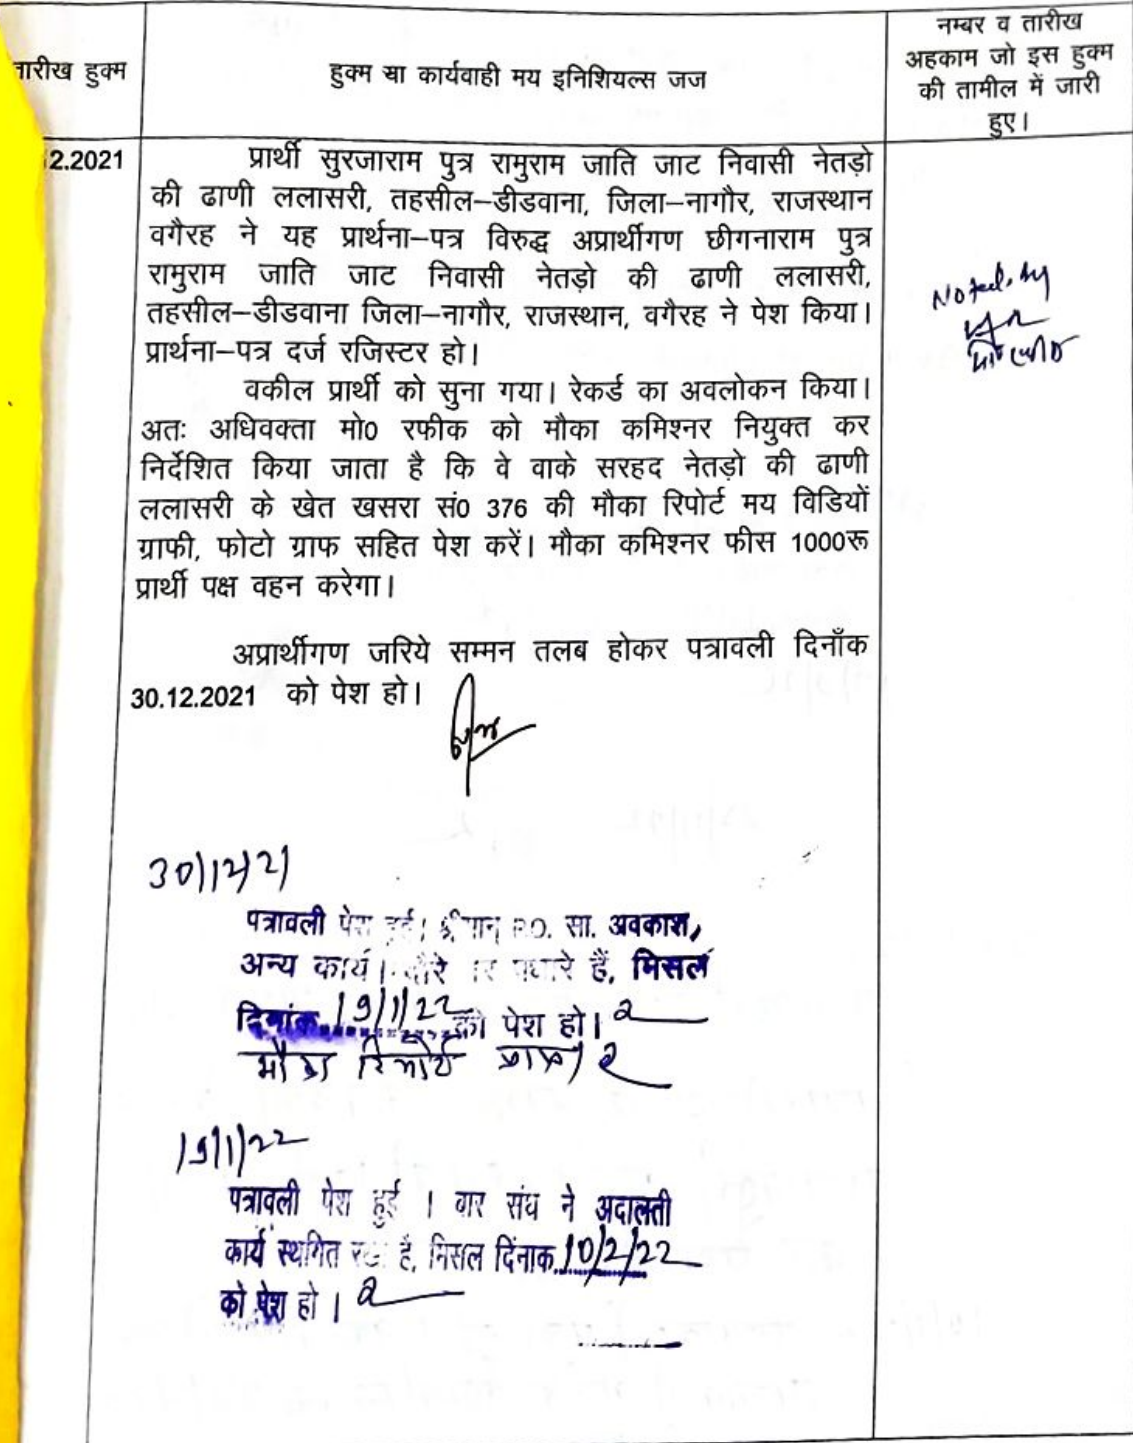 तारीख हुक्म
हुक्म या कार्यवाही मय इनिशियल्स जज
नम्बर व तारीख
अहकाम जो इस हुक्म
की तामील में जारी
हुए।
2.2021
प्रार्थी सुरजाराम पुत्र रामुराम जाति जाट निवासी नेतड़ो
की ढाणी ललासरी, तहसील–डीडवाना, जिला–नागौर, राजस्थान
वगैरह ने यह प्रार्थना–पत्र विरुद्ध अप्रार्थीगण छीगनाराम पुत्र
रामुराम जाति जाट निवासी नेतड़ो की ढाणी ललासरी,
तहसील–डीडवाना जिला–नागौर, राजस्थान, वगैरह ने पेश किया।
प्रार्थना–पत्र दर्ज रजिस्टर हो।
वकील प्रार्थी को सुना गया। रेकर्ड का अवलोकन किया।
अतः अधिवक्ता मो0 रफीक को मौका कमिश्नर नियुक्त कर
निर्देशित किया जाता है कि वे वाके सरहद नेतड़ो की ढाणी
ललासरी के खेत खसरा सं0 376 की मौका रिपोर्ट मय विडियों
ग्राफी, फोटो ग्राफ सहित पेश करें। मौका कमिश्नर फीस 1000रू
प्रार्थी पक्ष वहन करेगा।
अप्रार्थीगण जरिये सम्मन तलब होकर पत्रावली दिनाँक
30.12.2021 को पेश हो।
Noted by
30/12/21
पत्रावली पेश हुई। श्रीमान् P.O. सा. अवकाश,
अन्य कार्य। दौरे पर पधारे हैं, मिसल
दिनांक 19/1/22 को पेश हो।
मौका रिपोर्ट प्राप्त।
19/1/22
पत्रावली पेश हुई । बार संघ ने अदालती
कार्य स्थगित रखा है, मिसल दिंनाक 10/2/22
को पेश हो ।